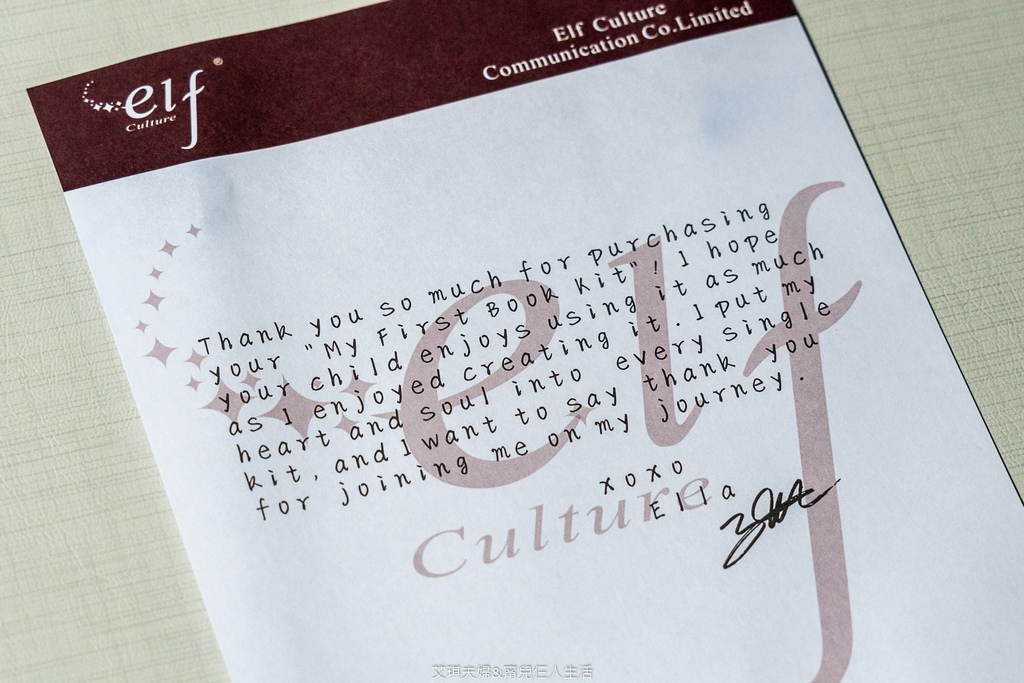 elf
Culture
®
Elf Culture
Communication Co.Limited
Thank you so much for purchasing
your "My First Book Kit"! I hope
your child enjoys using it as much
as I enjoyed creating it. I put my
heart and soul into every single
kit, and I want to say thank you
for joining me on my journey.
xoxo
Ella
elf
Culture
艾琪夫婦&蜜兒仨人生活